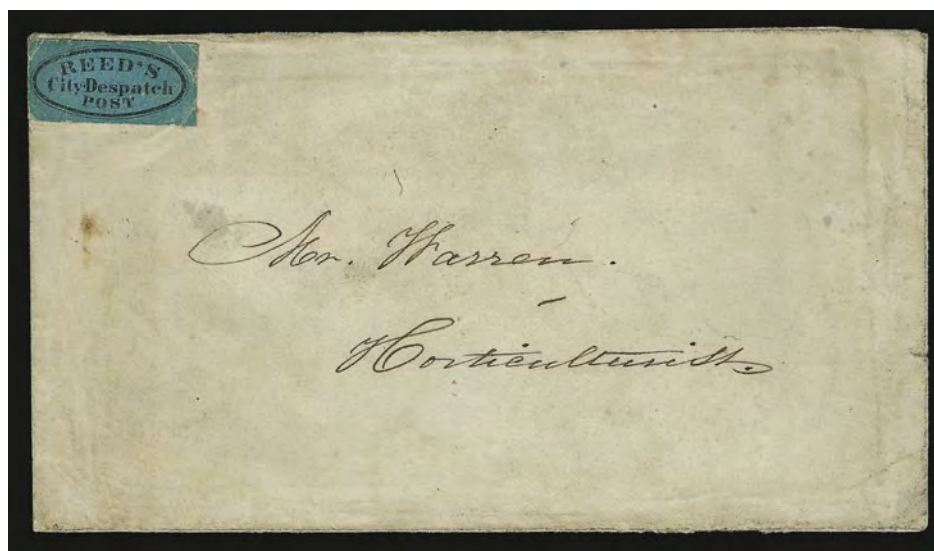 REED'S
City Despatch
POST
Mr. Warren.
Horticulturist.